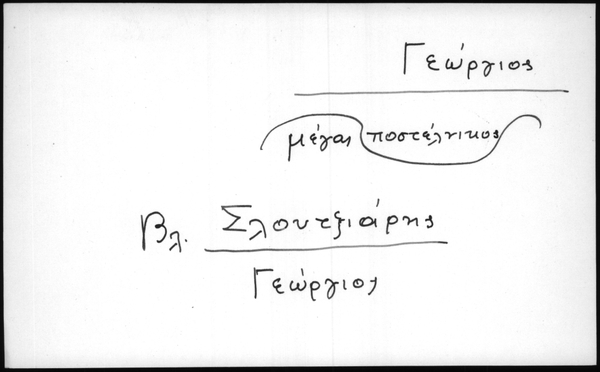 Γεώργιος
μέγας ποστέλνικος
Βλ. Σλουτζιάρης
Γεώργιος